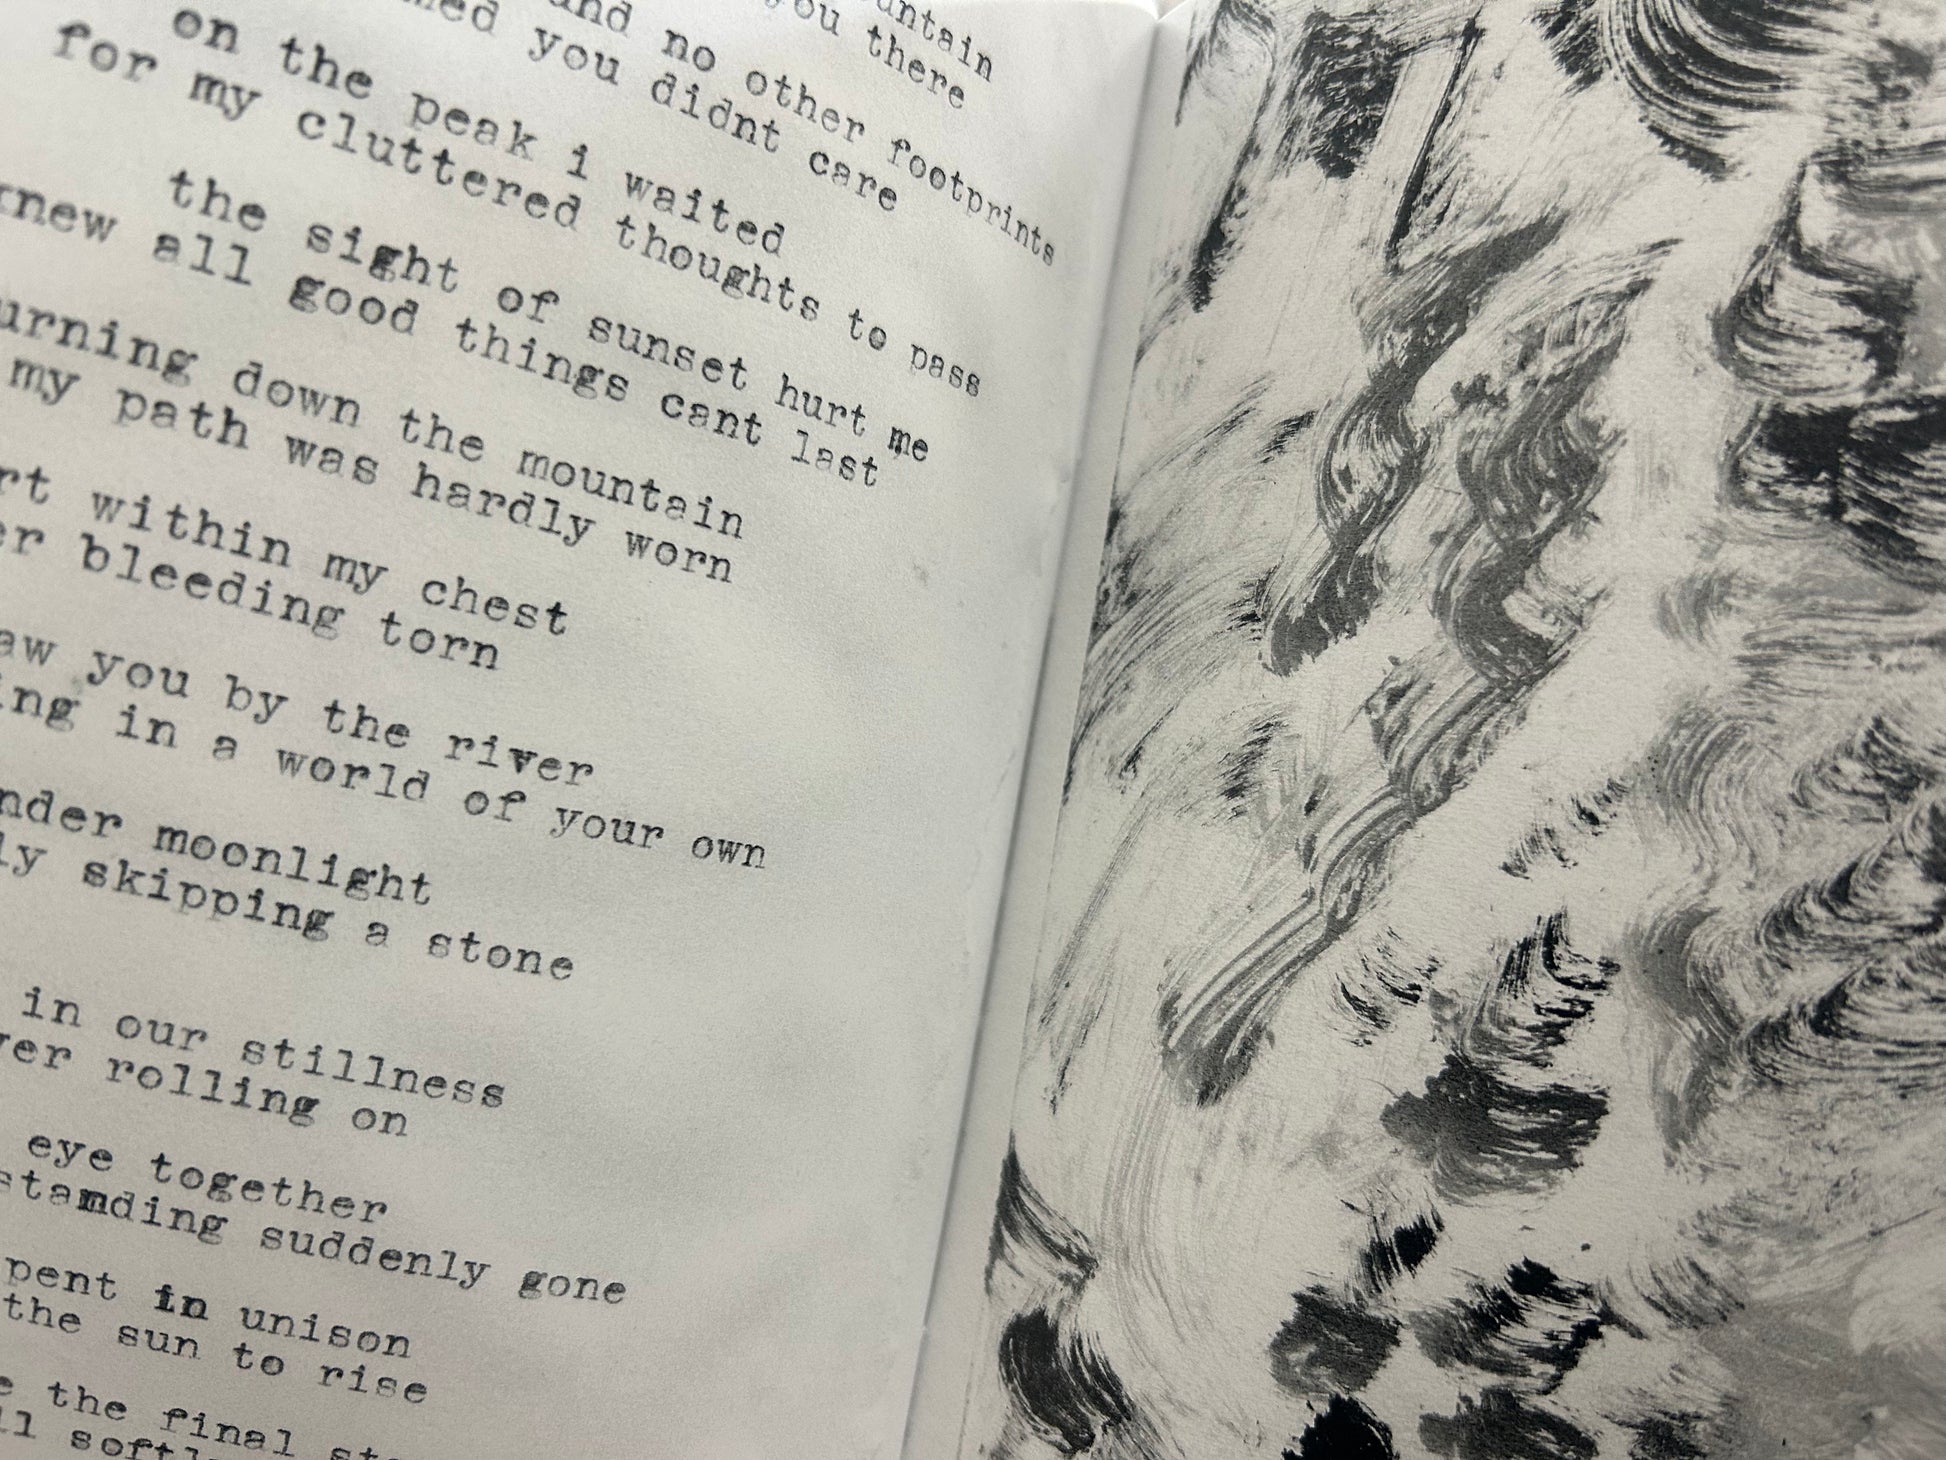 you there
and no other footprints
you didnt care
on the peak i waited
for my cluttered thoughts to pass
the sight of sunset hurt me
knew all good things cant last
down the mountain
my path was hardly worn
within my chest
bleeding torn
you by the river
in a world of your own
moonlight
skipping a stone
in our stillness
rolling on
eye together
stamding suddenly gone
in unison
the sun to rise
the final